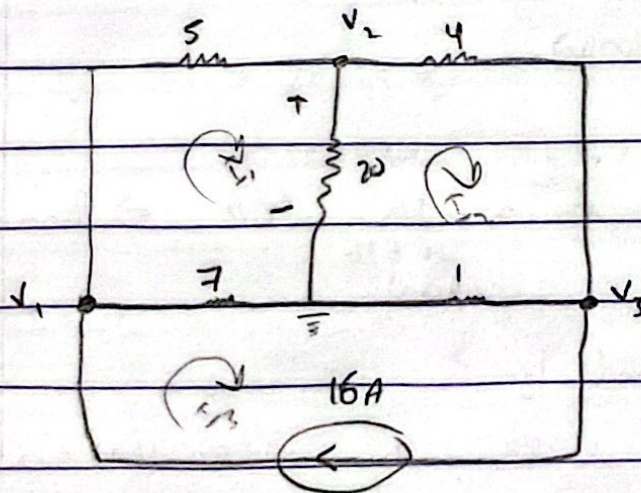 5 V₂ 4
+
I₁ 20 I₂
-
V₁ 7 1 V₃
I₃ 16A